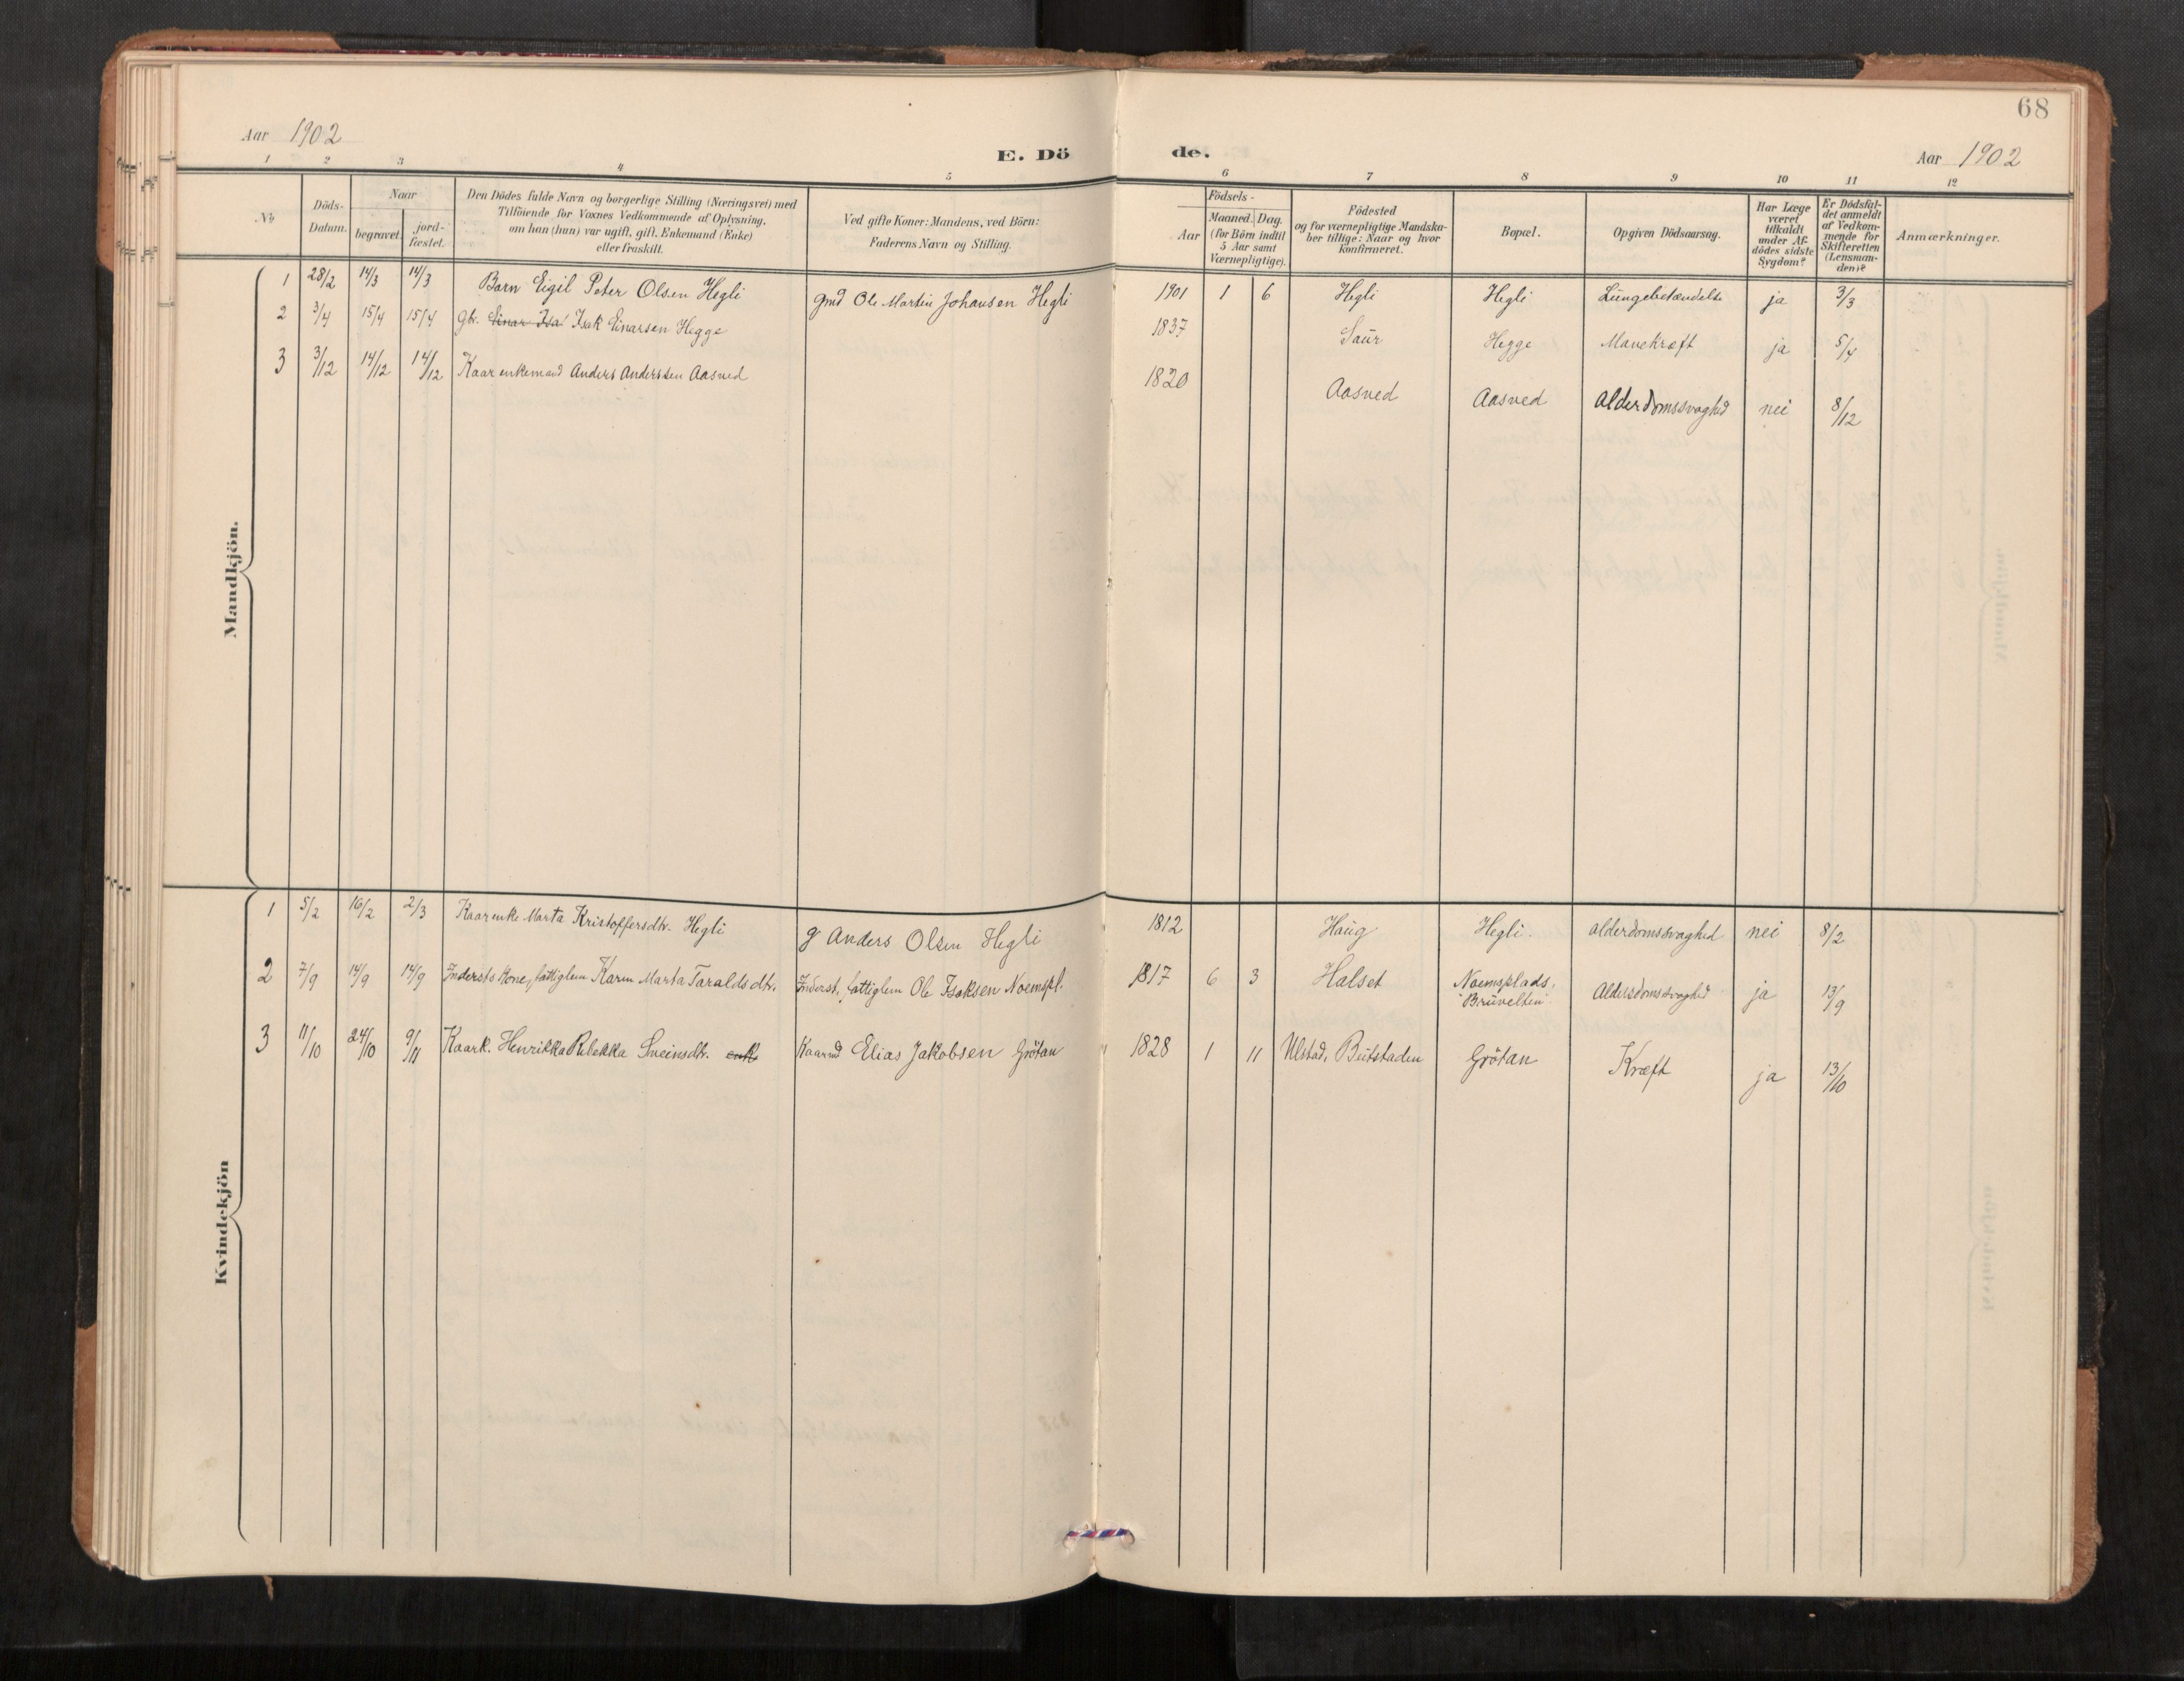 68
Aar 1902
E. Dö de.
Aar 1902
1 2 3 4 5 6 7 8 9 10 11 12
No
Döds-
Datum.
Naar
begravet.
jord-
fæstet.
Den Dödes fulde Navn og borgerlige Stilling (Næringsvei) med
Tilföiende for Voxnes Vedkommende af Oplysning,
om han (hun) var ugift, gift, Enkemand (Enke)
eller fraskilt.
Ved gifte Koner: Mandens, ved Börn:
Faderens Navn og Stilling.
Födsels-
Aar
Maaned. Dag.
(for Börn indtil
5 Aar samt
Værnepligtige).
Födested
og for værnepligtige Mandska-
ber tillige: Naar og hvor
konfirmeret.
Bopæl.
Opgiven Dödsaarsag.
Har Læge
været
tilkaldt
under Af-
dödes sidste
Sygdom?
Er Dödsfal-
det anmeldt
af Vedkom-
mende for
Skifteretten
(Lensman-
den)?
Anmærkninger.
Mandkjön.
1 28/2 14/3 14/3 Barn Eigil Peter Olsen Hegli gmd Ole Martin Johansen Hegli 1901 1 6 Hegli Hegli Lungebetændelse ja 3/3
2 3/4 15/4 15/4 gbr. Einar Isa Isak Einarsen Hegge 1837 Saur Hegge Mavekræft ja 5/4
3 3/12 14/12 14/12 Kaarenkemand Anders Anderssen Aasved 1820 Aasved Aasved Alderdomssvaghed nei 8/12
Kvindekjön
1 5/2 16/2 2/3 Kaarenke Marta Kristoffersdtr. Hegli g Anders Olsen Hegli 1812 Haug Hegli. Alderdomssvaghed nei 8/2
2 7/9 14/9 14/9 Inderstskone, fattiglem Karen Marta Taraldsdtr. Inderst, fattiglem Ole Isaksen Noemspl. 1817 6 3 Halset Noemsplads, Aldersdomssvaghed ja 13/9
Bruveltin
3 11/10 24/10 9/11 Kaark. Henrikka Rebekka Sveinsdtr. enk Kaarmd Elias Jakobsen Grötan 1828 1 11 Ulstad, Beitstaden Grötan Kræft ja 13/10